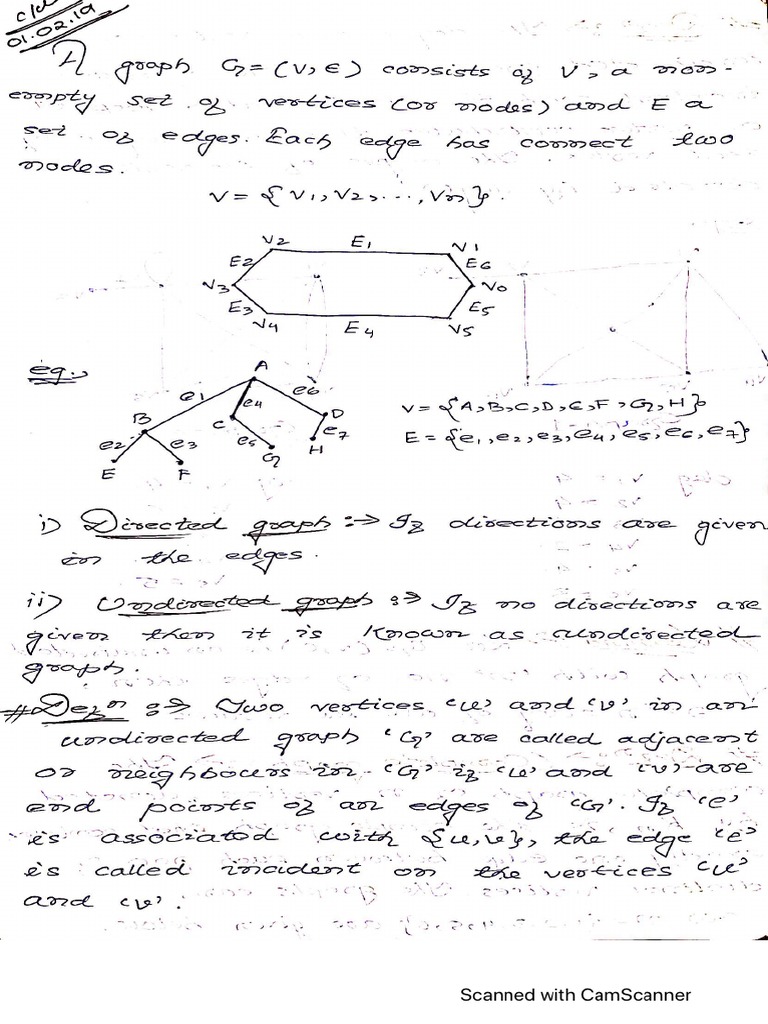 01.02.19
A graph G = (V, E) consists of V, a non-
empty set of vertices (or nodes) and E a
set of edges. Each edge has connect two
nodes.
V = {V1, V2, ..., Vn}.
V2 E1 V1
E2 E6
V3 V0
E3 E5
V4 E4 V5
eg:
A
e1 e4 e6
B C D
e2 e3 e5 e7
E F G H
V = {A, B, C, D, E, F, G, H}
E = {e1, e2, e3, e4, e5, e6, e7}
i) Directed graph :→ If directions are given
in the edges.
ii) Undirected graph :→ If no directions are
given then it is known as undirected
graph.
# Defn :→ Two vertices 'u' and 'v' in an
undirected graph 'G' are called adjacent
or neighbours in 'G' if 'u' and 'v' are
end points of an edges of 'G'. If 'e'
is associated with {u, v}, the edge 'e'
is called incident on the vertices 'u'
and 'v'.
Scanned with CamScanner